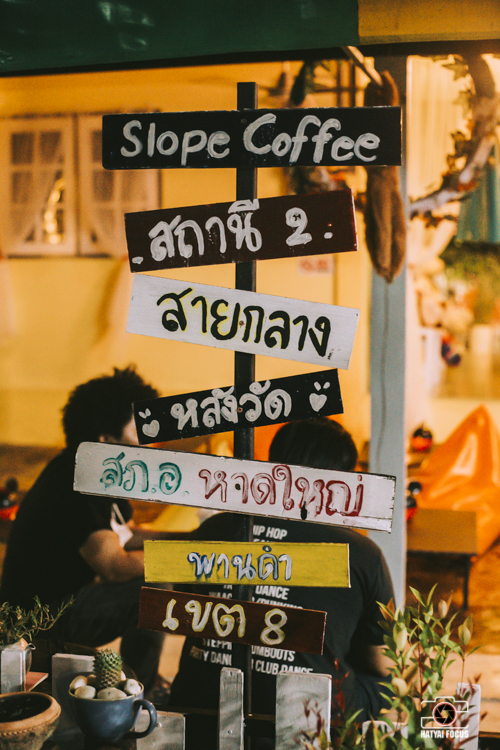 Slope Coffee
.สถานี 2.
สายกลาง
หลังวัด
สภ.อ. หาดใหญ่
พานดำ
เขต 8
HIP HOP
DANCE
DANCE
CLUB DANCE
HATYAI FOCUS